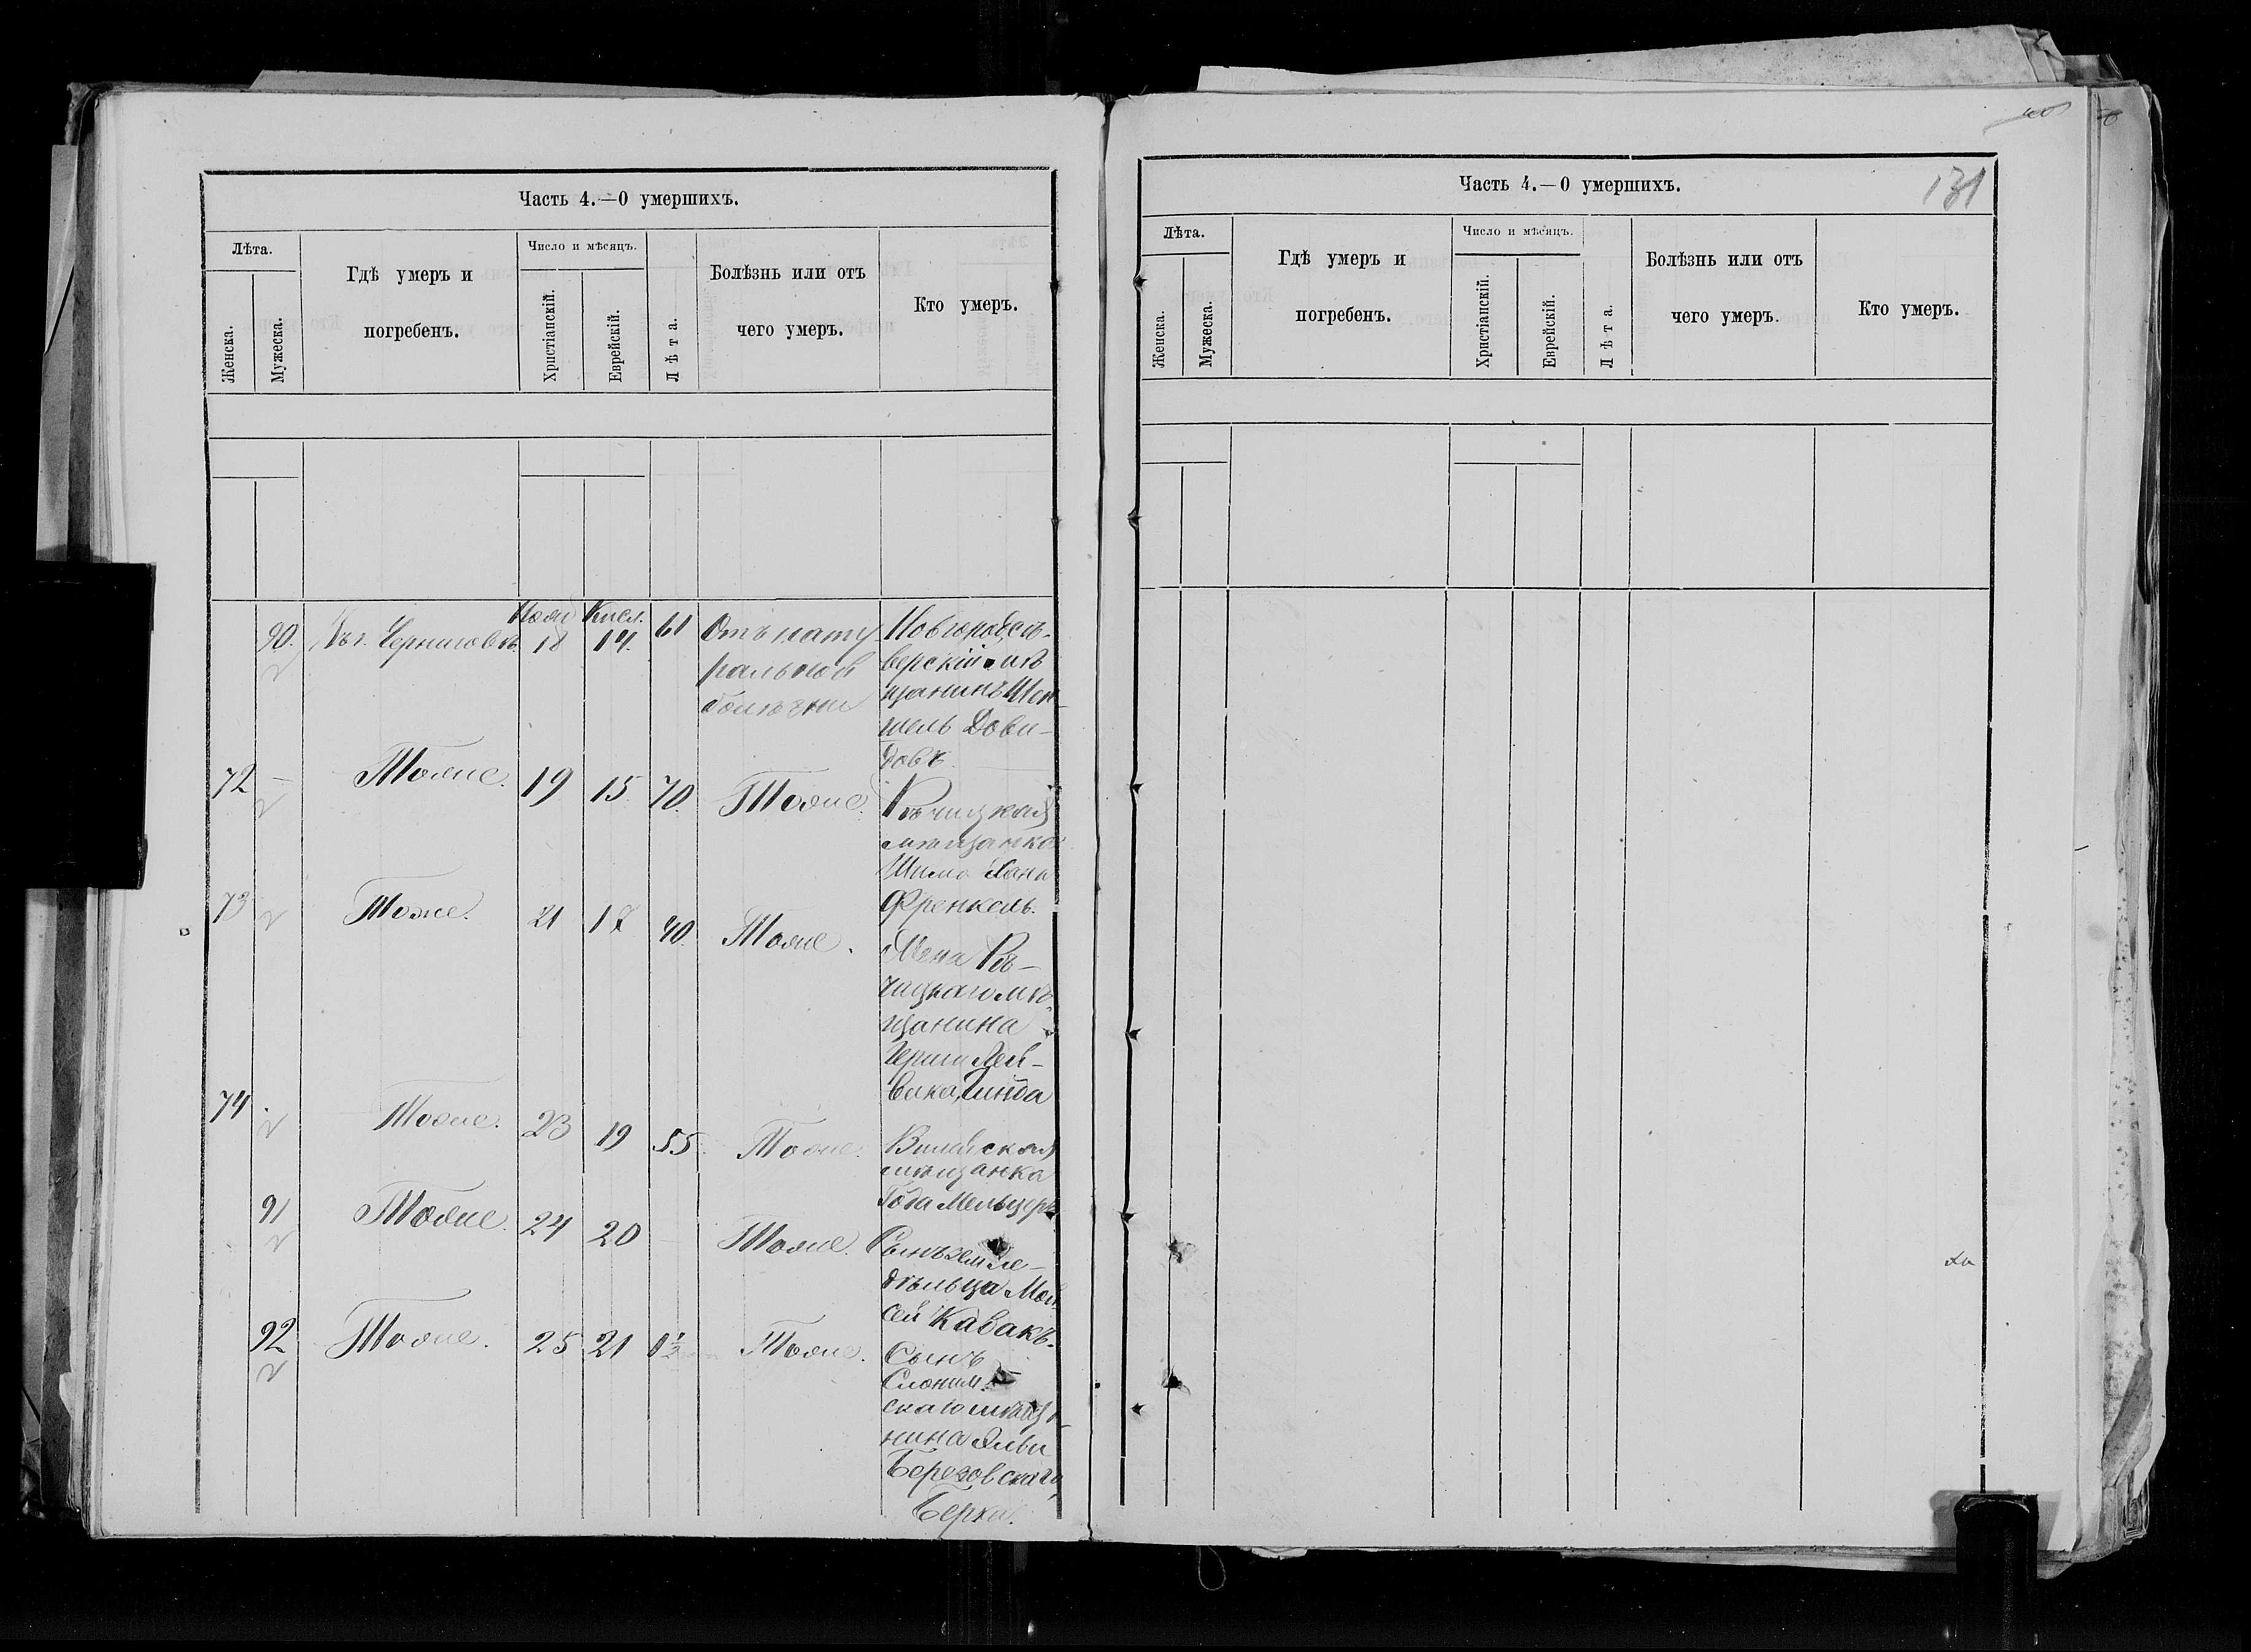 Часть 4.—О умершихъ.
Лѣта.
Женска.
Мужеска.
Гдѣ умеръ и
погребенъ.
Число и мѣсяцъ.
Христіанскій.
Еврейскій.
Лѣта.
Болѣзнь или отъ
чего умеръ.
Кто умеръ.
Нояб Кисл.
90. Въ г. Черниговѣ. 18 14. 61 Отъ нату
ральной
болѣзни
Новгородсѣ-
верскій мѣ
щанинъ
Дови-
довъ
72 — Тоже. 19 15 70. Тоже.
Рѣчицкая
мѣщанка
Шима Хана
Френкель.
73 Тоже. 21 17 40. Тоже.
Жена Рѣ-
чицкаго мѣ
щанина
Герши Лей-
вика, Гинда
74 Тоже. 23 19 55. Тоже.
Вилейская
мѣщанка
Года Мельцеръ
91 Тоже. 24 20 — Тоже.
Сынъ земле-
дѣльца Мои
сей Кавакъ.
92 Тоже. 25 21 1/2 Тоже.
Сынъ
Слоним-
скаго мѣща-
нина
Березовскаго,
Берка.
Часть 4.—О умершихъ.
131
Лѣта.
Женска.
Мужеска.
Гдѣ умеръ и
погребенъ.
Число и мѣсяцъ.
Христіанскій.
Еврейскій.
Лѣта.
Болѣзнь или отъ
чего умеръ.
Кто умеръ.